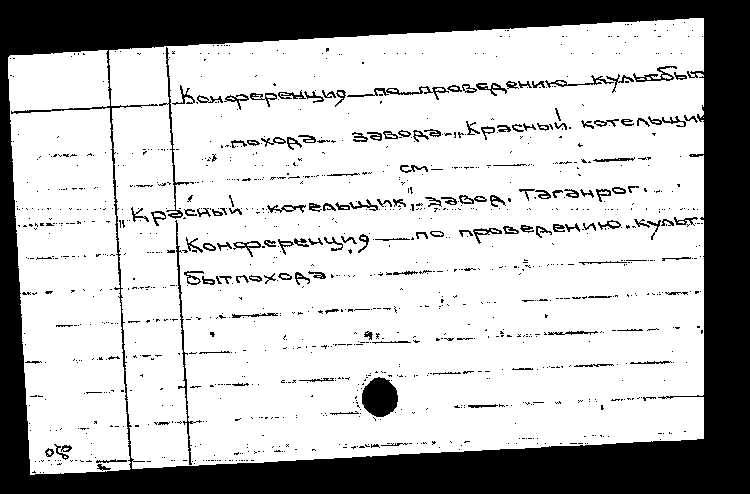 Конференция по проведению культбыт
похода завода „Красный котельщик
см
„Красный котельщик", завод. Таганрог.
Конференция по проведению культ-
бытпохода.